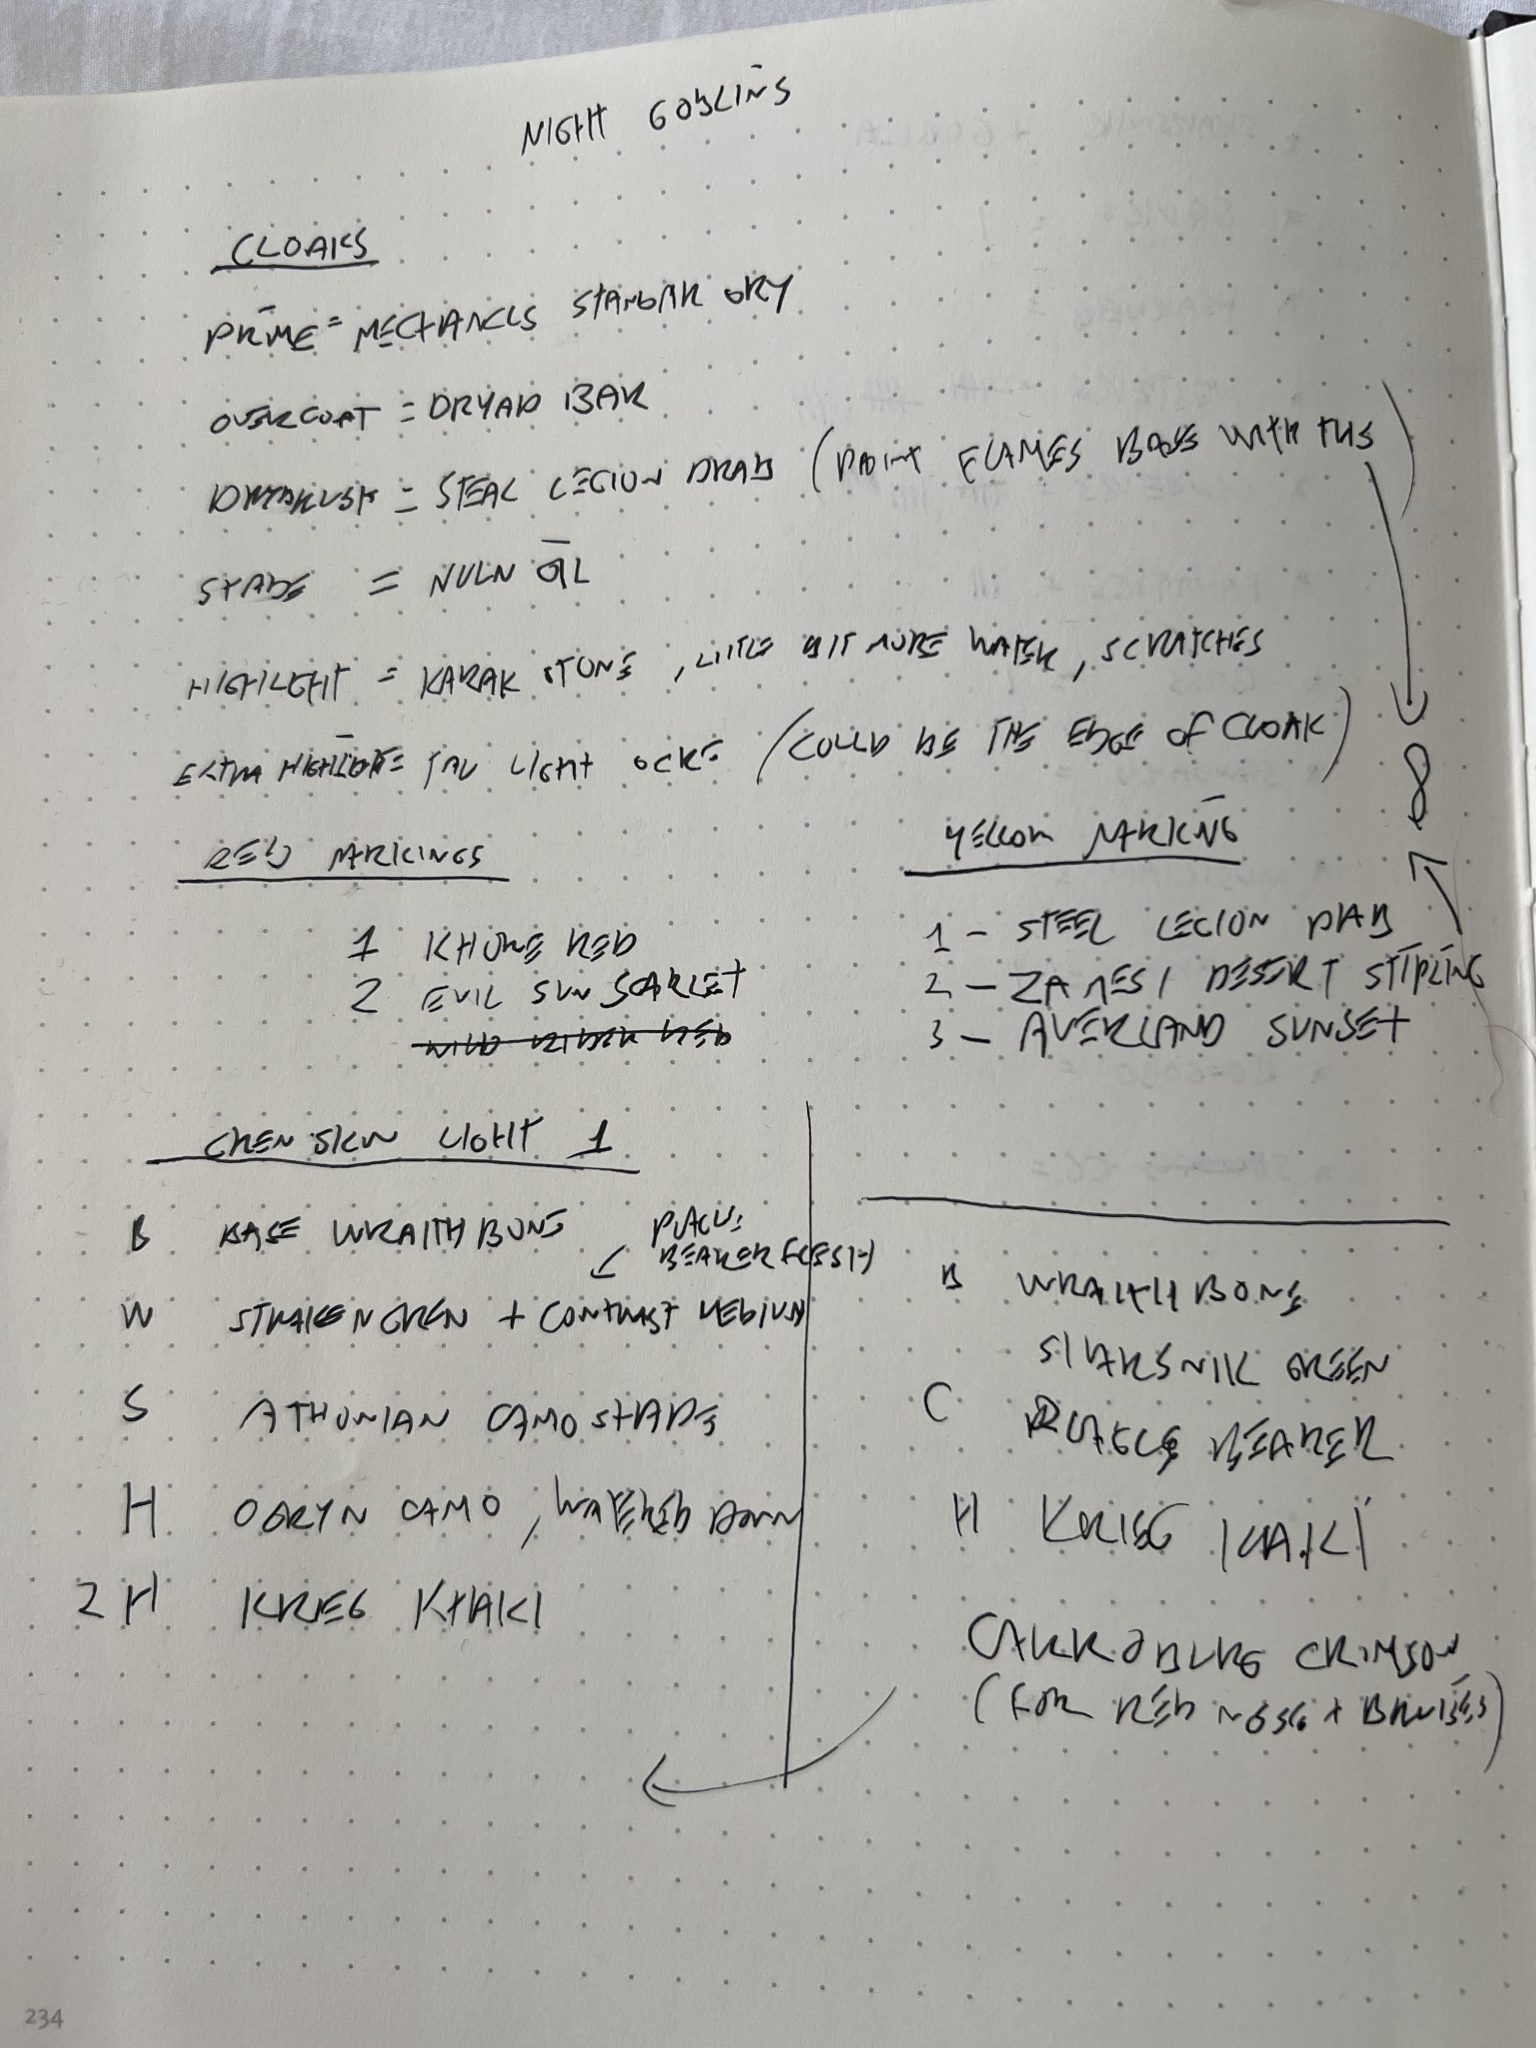 NIGHT GOBLINS
CLOAKS
PRIME = MECHANICLS STANDAR GRY
OVERCOAT = DRYAD BAR
DRYBRUSH = STEAL LEGION DRAB (PAINT FLAMES BASE WITH THIS)
SHADE = NULN OIL
HIGHLIGHT = KARAK STONE, LITTLE BIT MORE WATER, SCRATCHES
EXTRA HIGHLIGHT = TAU LIGHT OCRE (COULD BE THE EDGE OF CLOAK)
RED MARKINGS
1 KHORNE RED
2 EVIL SUN SCARLET
WILD RIDER RED
YELLOW MARKING
1 - STEEL LEGION DRAB
2 - ZAMESI DESERT STIPLING
3 - AVERLAND SUNSET
GREN SKIN LIGHT 1
B BASE WRAITHBONE
PLAGUE
BEARER FLESH
W STRAKEN GREN + CONTRAST MEDIUM
S ATHONIAN CAMOSHADE
H OGRYN CAMO, WATERED DOWN
2H KRIEG KHAKI
B WRAITHBONE
SKARSNIK GREEN
C PLAGUE BEARER
H KRIEG KHAKI
CARROBURG CRIMSON
(FOR RED NOSE + BRUISES)
234